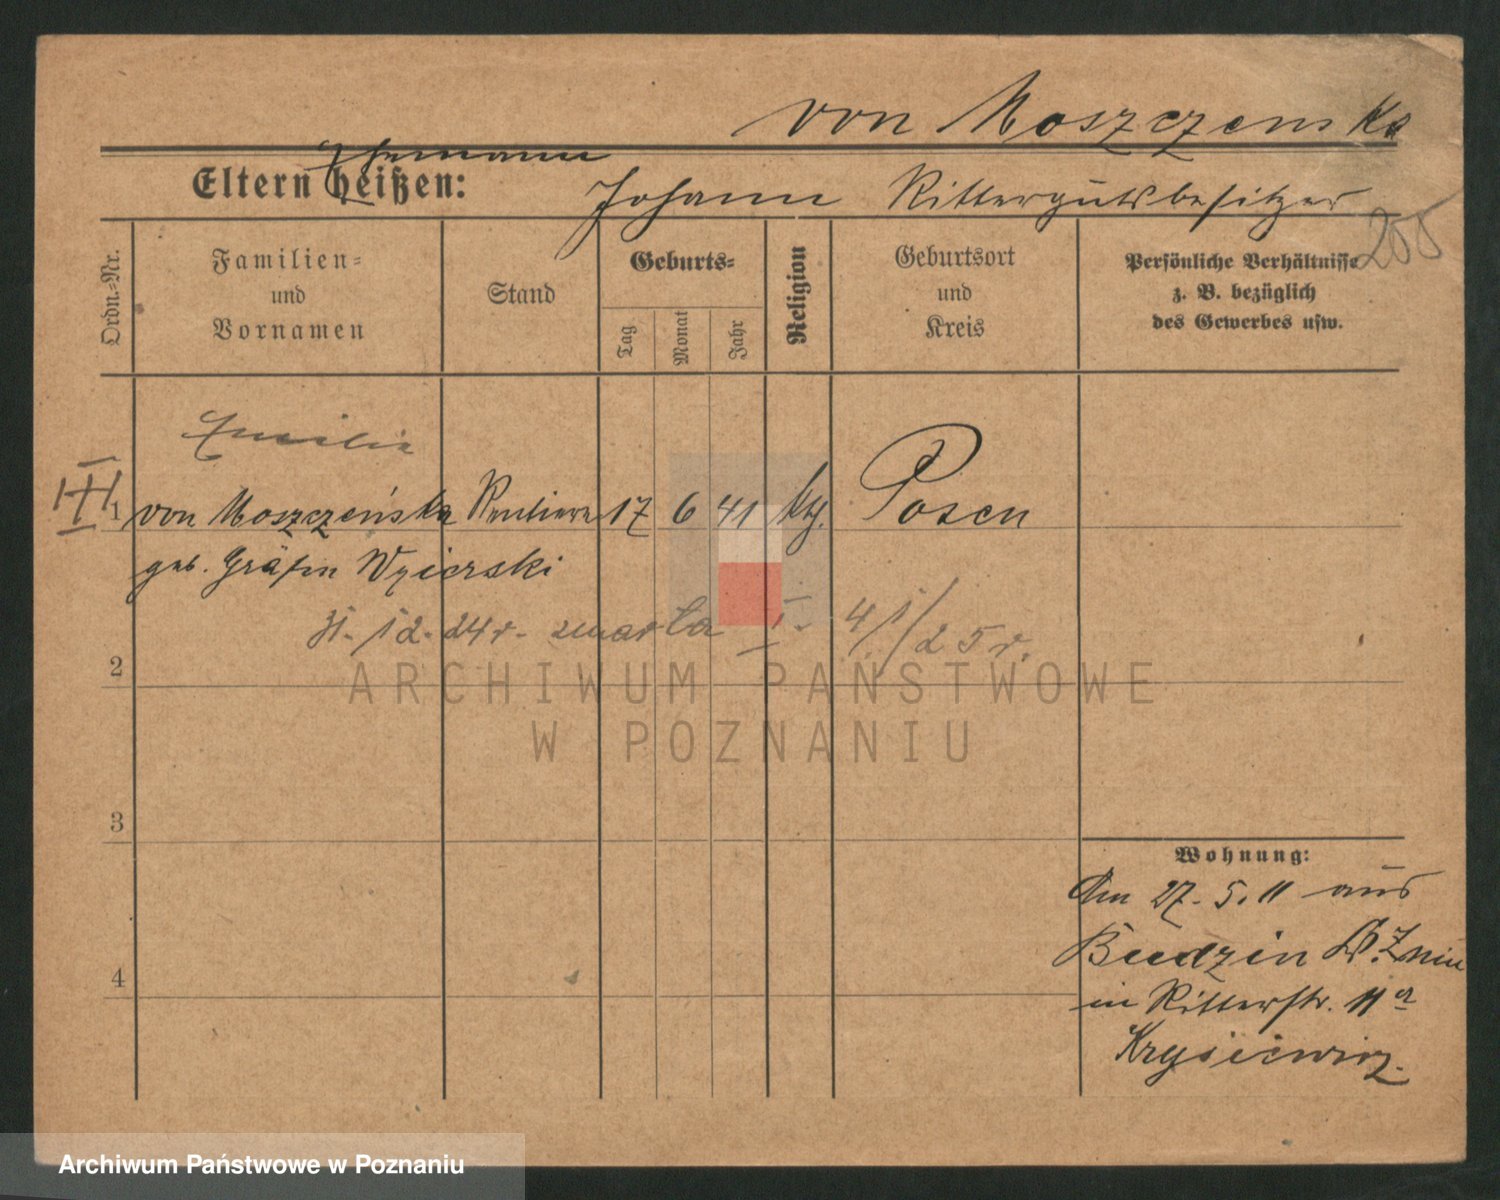 von Moszczenska
Ehemann
Eltern heißen: Johann Rittergutsbesitzer
205
Ordn.-Nr.
Familien- und Vornamen
Stand
Geburts-
Tag
Monat
Jahr
Religion
Geburtsort und Kreis
Persönliche Verhältnisse
z. B. bezüglich
des Gewerbes usw.
Emilia
III
1 von Moszczeńska Rentiere 17 6 41 kth. Posen
geb. Gräfin Węsierski
31. 12. 24 r. zmarła I. 4/1/25 r.
2
ARCHIWUM PAŃSTWOWE
W POZNANIU
3
Wohnung:
Am 27. 5. 11 aus
4
in Ritterstr. 11a
Krysiewicz.
Archiwum Państwowe w Poznaniu